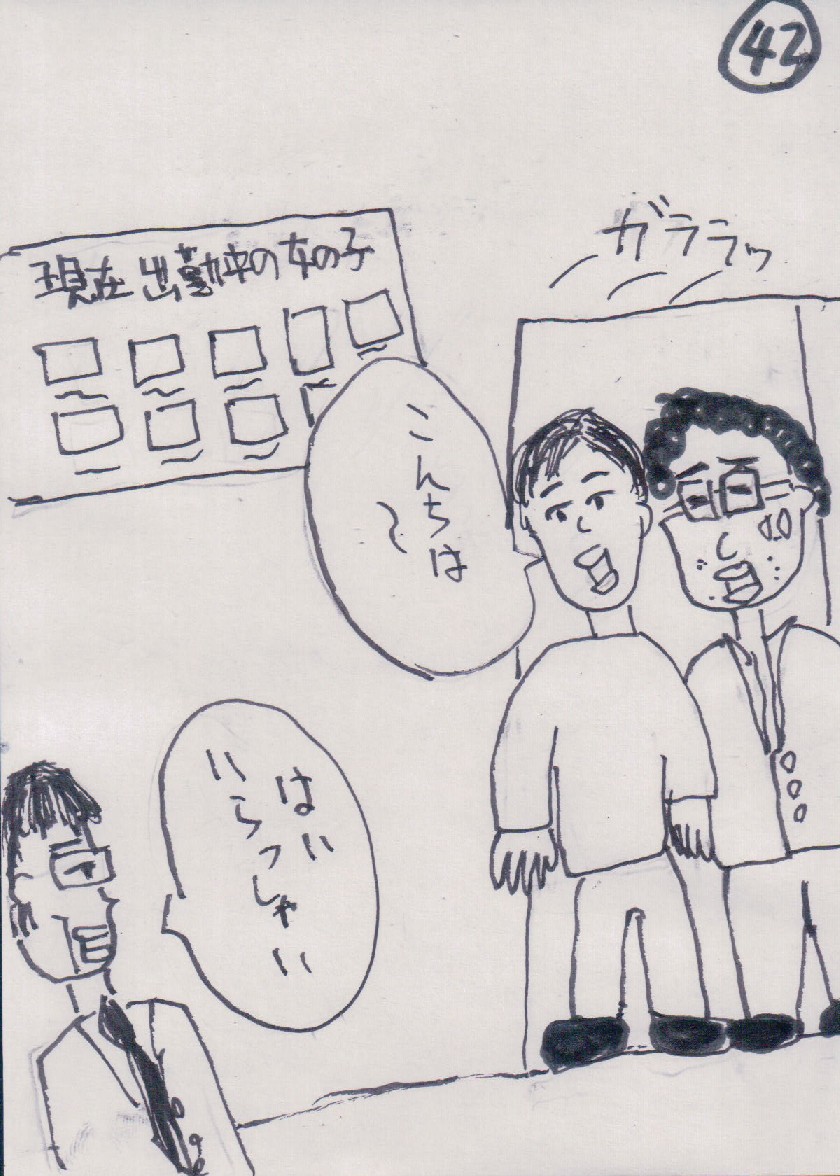 42
ガララッ
現在出勤中の女の子
こんちは
〜
はい
いらっしゃい